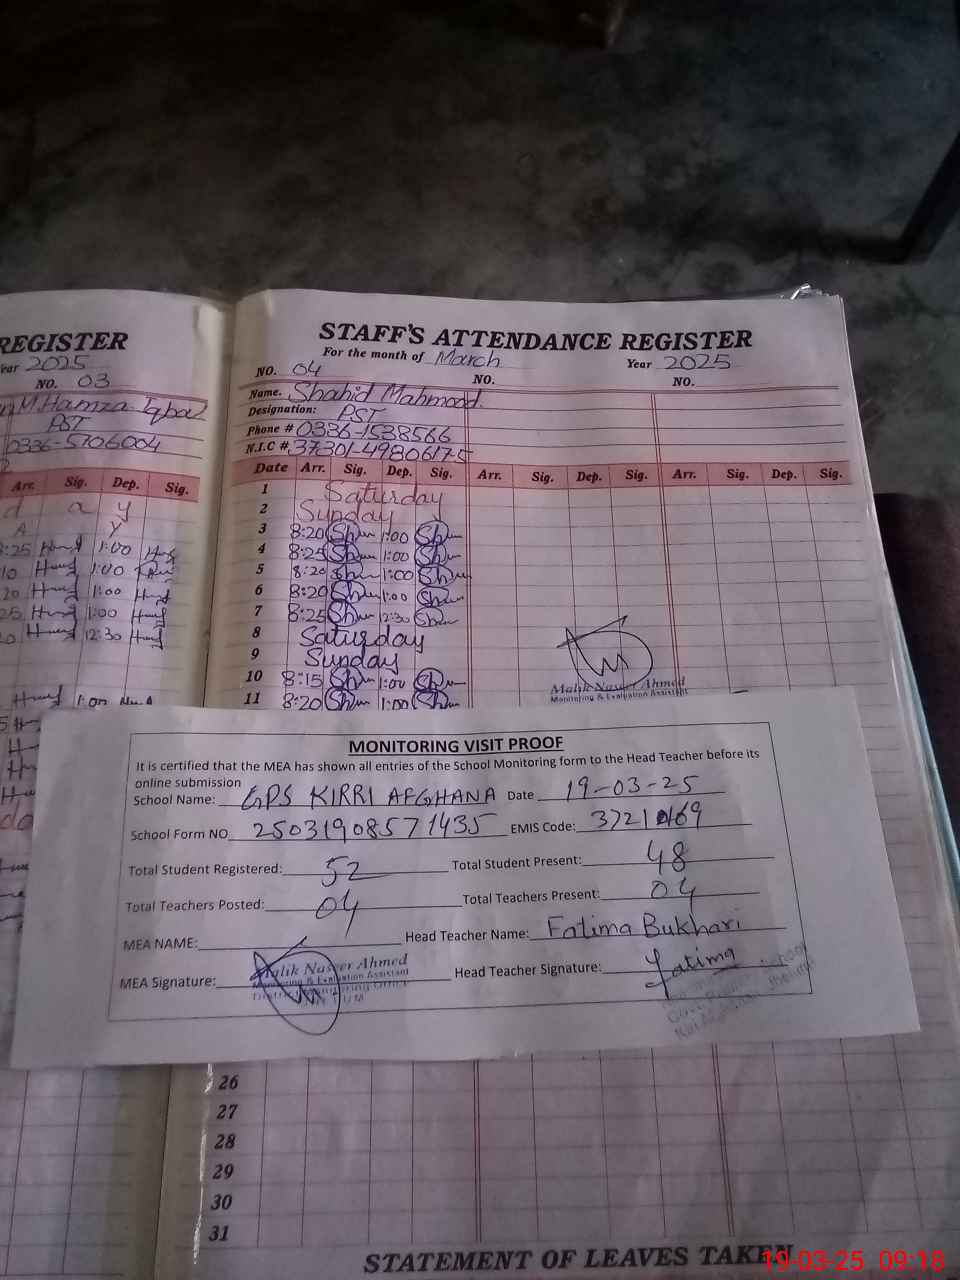 REGISTER
ear 2025
NO. 03
M.Hamza Iqbal
PST
0336-5706004
Arr. Sig. Dep. Sig.
d a y
A y
:25 1:00
10 1:00
20 1:00
25 1:00
0 12:30
1:00
STAFF'S ATTENDANCE REGISTER
For the month of March Year 2025
NO. 04 NO. NO.
Name. Shahid Mahmood.
Designation: PST
Phone # 0336-1538566
N.I.C # 37301-4980617-5
Date Arr. Sig. Dep. Sig. Arr. Sig. Dep. Sig. Arr. Sig. Dep. Sig.
1 Saturday
2 Sunday
3 8:20 1:00
4 8:25 1:00
5 8:20 1:00
6 8:20 1:00
7 8:25 12:30
8 Saturday
9 Sunday
10 8:15 1:00
11 8:20 1:00
Malik Naseer Ahmed
Monitoring & Evaluation Assistant
MONITORING VISIT PROOF
It is certified that the MEA has shown all entries of the School Monitoring form to the Head Teacher before its
online submission
School Name: GPS KIRRI AFGHANA Date 19-03-25
School Form NO 25031908571435 EMIS Code: 37210169
Total Student Registered: 52 Total Student Present: 48
Total Teachers Posted: 04 Total Teachers Present: 04
MEA NAME: Head Teacher Name: Fatima Bukhari
MEA Signature: Malik Naseer Ahmed Head Teacher Signature: Fatima
Monitoring & Evaluation Assistant
District Monitoring Office
School
26
27
28
29
30
31
STATEMENT OF LEAVES TAKEN
19-03-25 09:18